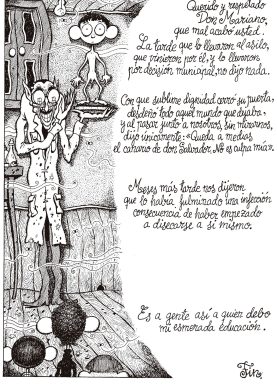 Querido y respetado
Don Mariano,
que mal acabó usted.
La tarde que lo llevaron al asilo,
que vinieron por él, y lo llevaron
por decisión municipal, no dijo nada.
Con que sublime dignidad cerró su puerta,
desdeñó todo aquel mundo que dejaba,
y al pasar junto a nosotros, sin mirarnos,
dijo únicamente: «Queda a medias
el canario de don Salvador. No es culpa mía».
Meses más tarde nos dijeron
que lo había fulminado una infección
consecuencia de haber empezado
a disecarse a sí mismo.
Es a gente así a quien debo
mi esmerada educación.